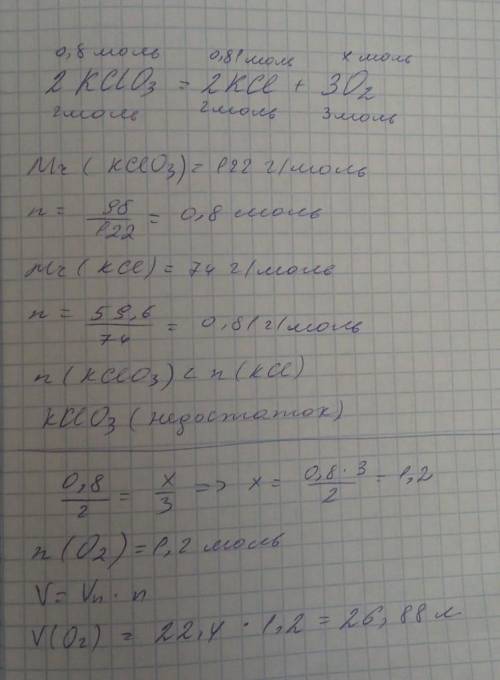 0,8 моль 0,81 моль x моль
2 KClO3 = 2KCl + 3O2
2моль 2моль 3моль
Mr (KClO3) = 122 г/моль
n = 98/122 = 0,8 моль
Mr (KCl) = 74 г/моль
n = 59,6/74 = 0,81 г/моль
n (KClO3) < n (KCl)
KClO3 (недостаток)
0,8/2 = x/3 => x = 0,8·3/2 = 1,2
n (O2) = 1,2 моль
V = Vn · n
V(O2) = 22,4 · 1,2 = 26,88 л